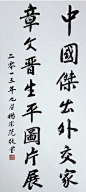 中國傑出外交家
章文晋生平圖片展
二零一三年九月楊術院敬書